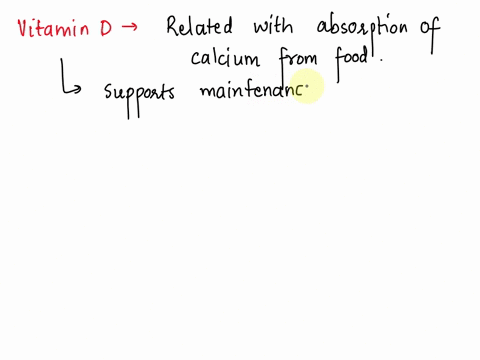 Vitamin D → Related with absorption of
calcium from food.
↳ Supports maintenanc